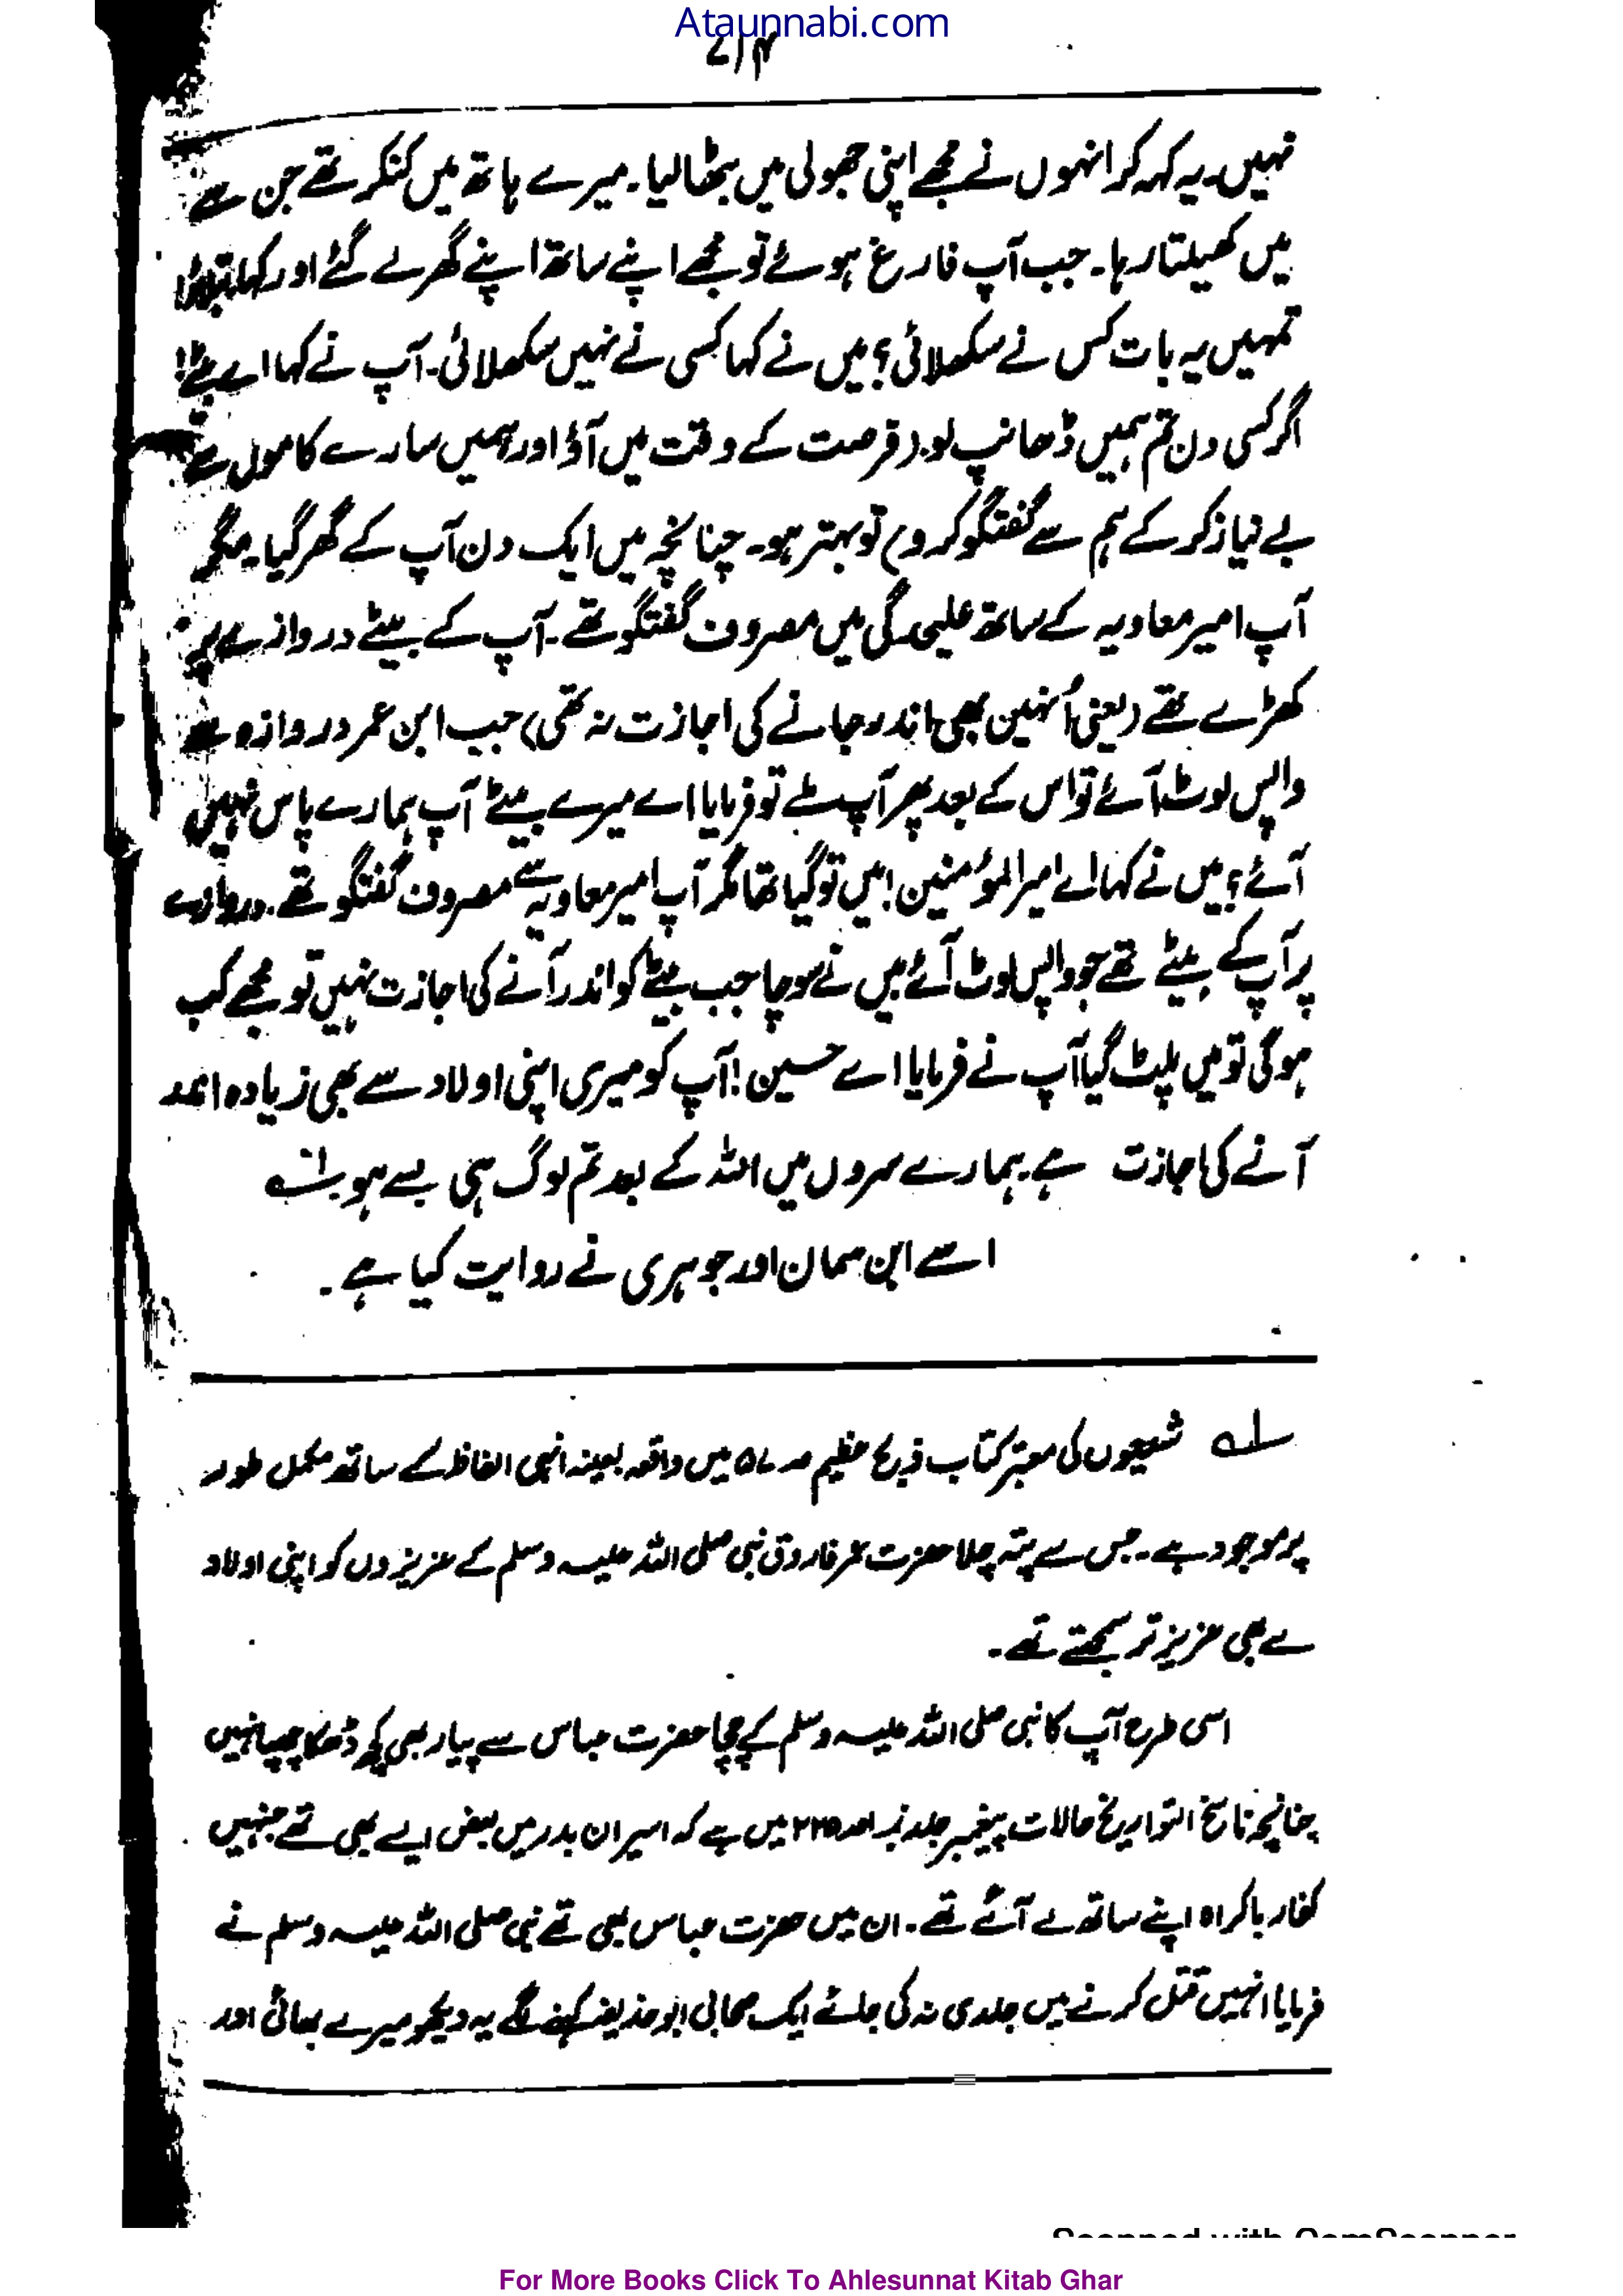 Ataunnabi.com
۷۱۴
نہیں۔ یہ کہہ کر انہوں نے مجھے اپنی جھولی میں بٹھا لیا۔ میرے ہاتھ میں کنکر تھے جن سے
میں کھیلتا رہا۔ جب آپ فارغ ہوئے تو مجھے اپنے ساتھ اپنے گھر لے گئے اور کہا
تمہیں یہ بات کس نے سکھلائی؟ میں نے کہا کسی نے نہیں سکھلائی۔ آپ نے کہا اے بیٹے!
اگر کسی دن تم ہمیں ڈھانپ لو۔ (فرصت کے وقت میں آؤ اور ہمیں سارے کاموں سے
بے نیاز کر کے ہم سے گفتگو کرو) تو بہتر ہو۔ چنانچہ میں ایک دن آپ کے گھر گیا۔ مگر
آپ امیر معاویہ کے ساتھ علیحدگی میں مصروف گفتگو تھے۔ آپ کے بیٹے دروازے پر
کھڑے تھے (یعنی اُنہیں بھی اندر جانے کی اجازت نہ تھی) جب ابن عمر دروازہ سے
واپس لوٹ آئے تو اس کے بعد پھر آپ ملے تو فرمایا اے میرے بیٹے آپ ہمارے پاس نہیں
آئے؟ میں نے کہا اے امیر المؤمنین! میں تو گیا تھا مگر آپ امیر معاویہ سے مصروف گفتگو تھے۔ دروازے
پر آپ کے بیٹے تھے جو واپس لوٹ آئے میں نے سوچا جب بیٹے کو اندر آنے کی اجازت نہیں تو مجھے کب
ہو گی تو میں پلٹ گیا آپ نے فرمایا اے حسین! آپ کو میری اپنی اولاد سے بھی زیادہ اندر
آنے کی اجازت ہے۔ ہمارے سروں میں اللہ کے بعد تم لوگ ہی بسے ہو۔ لہ
اسے ابن سمان اور جوہری نے روایت کیا ہے۔
لہ شیعوں کی معتبر کتاب ذبح عظیم صد ۵۷ میں واقعہ بعینہ انہی الفاظ کے ساتھ مکمل طور
پر موجود ہے۔ جس سے پتہ چلا حضرت عمر فاروق نبی صلی اللہ علیہ وسلم کے عزیزوں کو اپنی اولاد
سے بھی عزیز تر سمجھتے تھے۔
اسی طرح آپ کا نبی صلی اللہ علیہ وسلم کے چچا حضرت عباس سے پیار بھی کچھ ڈھکا چھپا نہیں
چنانچہ ناسخ التواریخ حالات پیغمبر جلد نمبر صد ۲۲۵ میں ہے کہ اسیران بدر میں بعض ایسے بھی تھے جنہیں
کفار باکراہ اپنے ساتھ لے آئے تھے۔ ان میں حضرت عباس بھی تھے نبی صلی اللہ علیہ وسلم نے
فرمایا انہیں قتل کرنے میں جلدی نہ کی جائے ایک صحابی ابو حذیفہ کہنے لگے یہ دیکھو میرے بھائی اور
Scanned with CamScanner
For More Books Click To Ahlesunnat Kitab Ghar